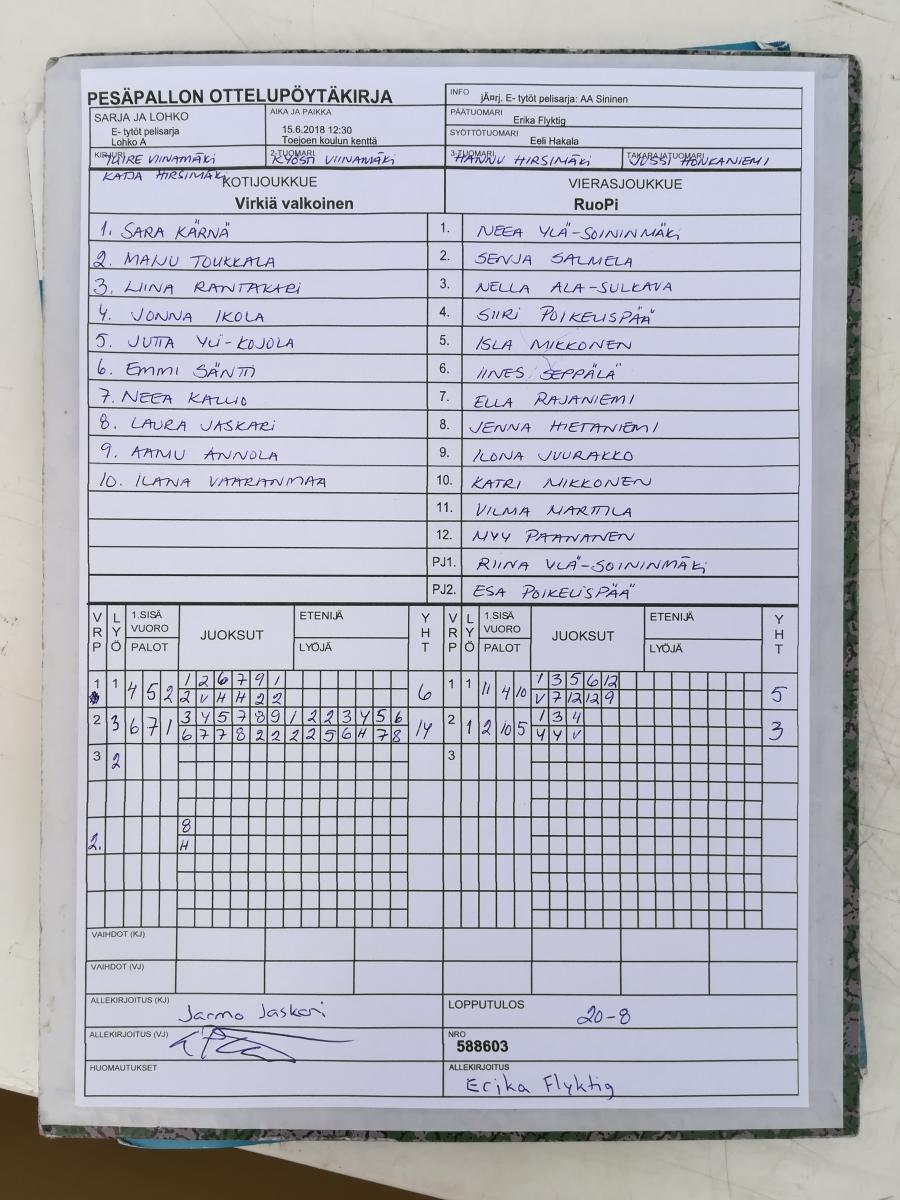 PESÄPALLON OTTELUPÖYTÄKIRJA
INFO jÃ¤rj. E- tytöt pelisarja: AA Sininen
SARJA JA LOHKO
E- tytöt pelisarja
Lohko A
AIKA JA PAIKKA
15.6.2018 12:30
Toejoen koulun kenttä
PÄÄTUOMARI
Erika Flyktig
SYÖTTÖTUOMARI
Eeli Hakala
KIRJURI TUIRE VIINAMÄKI
KATJA HIRSIMÄKI
2-TUOMARI KYÖSTI VIINAMÄKI
3-TUOMARI HANNU HIRSIMÄKI
TAKARAJATUOMARI JUSSI HONKANIEMI
KOTIJOUKKUE
Virkiä valkoinen
VIERASJOUKKUE
RuoPi
1. SARA KÄRNÄ 1. NEEA YLÄ-SOININMÄKI
2. MAIJU TOUKKALA 2. SENJA SALMELA
3. LIINA RANTAKARI 3. NELLA ALA-SULKAVA
4. JONNA IKOLA 4. SIIRI POIKELISPÄÄ
5. JUTTA YLI-KOJOLA 5. ISLA MIKKONEN
6. EMMI SÄNTTI 6. IINES SEPPÄLÄ
7. NEEA KALLIO 7. ELLA RAJANIEMI
8. LAURA JASKARI 8. JENNA HIETANIEMI
9. AAMU ANNOLA 9. ILONA JUURAKKO
10. ILANA VAARANMAA 10. KATRI MIKKONEN
11. VILMA MARTTILA
12. MYY PAANANEN
PJ1. RIINA YLÄ-SOININMÄKI
PJ2. ESA POIKELISPÄÄ
VRP LYÖ 1.SISÄ VUORO PALOT JUOKSUT ETENIJÄ LYÖJÄ YHT VRP LYÖ 1.SISÄ VUORO PALOT JUOKSUT ETENIJÄ LYÖJÄ YHT
1 1 4 5 2 1 2 6 7 9 1 6 1 1 11 4 10 1 3 5 6 12 5
2 V H H 2 2 V 7 12 12 9
2 3 6 7 1 3 4 5 7 8 9 1 2 2 3 4 5 6 14 2 1 2 10 5 1 3 4 3
6 7 7 8 2 2 2 2 5 6 H 7 8 4 4 V
3 2 3
8
2. H
VAIHDOT (KJ)
VAIHDOT (VJ)
ALLEKIRJOITUS (KJ) Jarmo Jaskari
LOPPUTULOS 20-8
ALLEKIRJOITUS (VJ)
NRO
588603
HUOMAUTUKSET
ALLEKIRJOITUS
Erika Flyktig